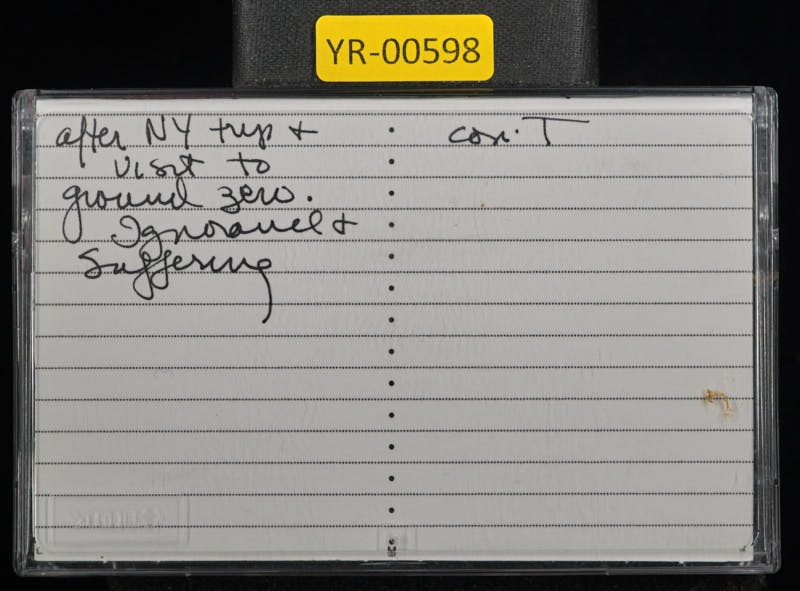 YR-00598
after NY trip +
visit to
ground zero.
Ignorance +
Suffering
con. T